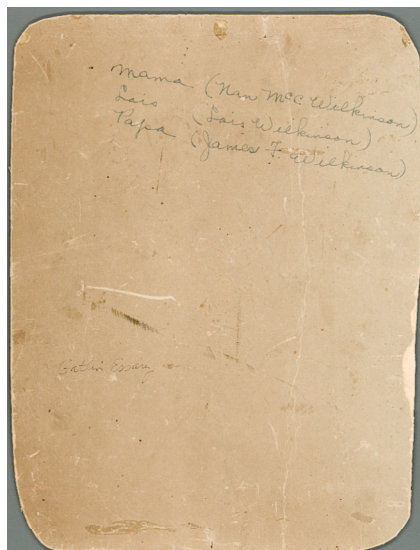 Mama (Nan McC Wilkinson)
Lois (Lois Wilkinson)
Papa (James F. Wilkinson)